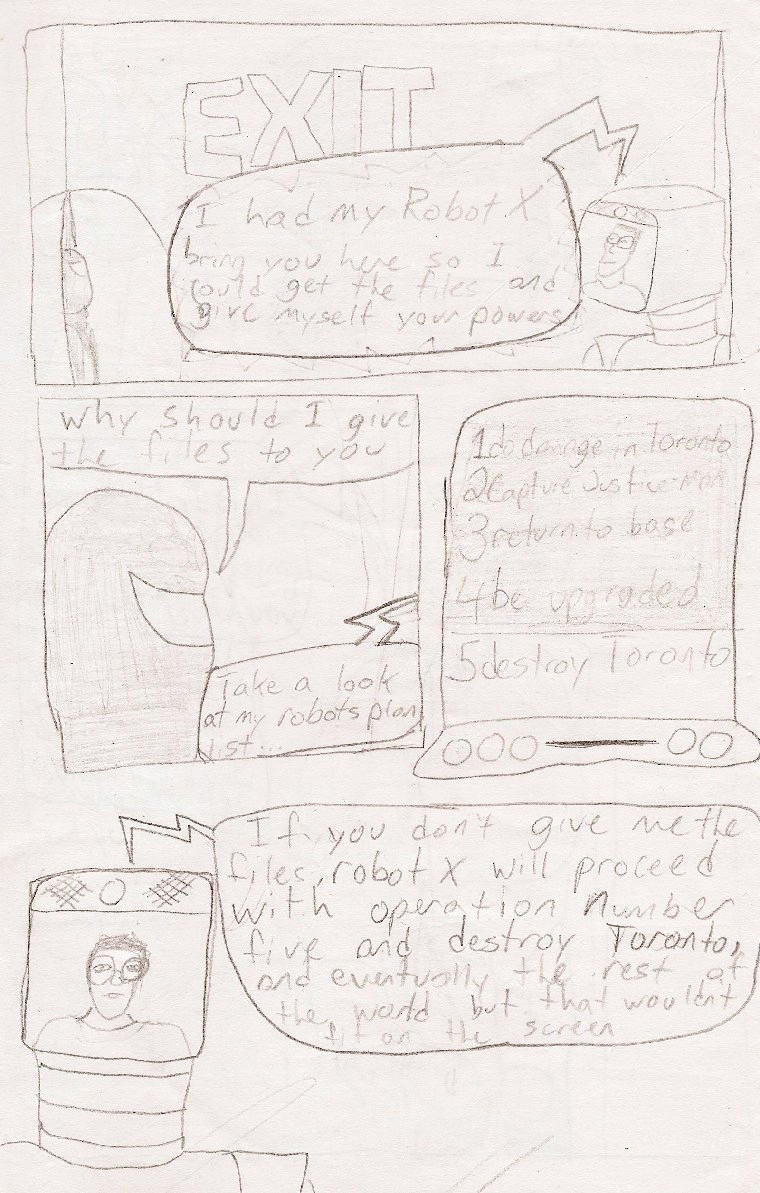 EXIT
I had my Robot X
bring you here so I
could get the files and
give myself your powers!
Why should I give
the files to you
Take a look
at my robots plan
list...
1do damage in Toronto
2Capture Justice-man
3return to base
4be upgraded
5destroy Toronto
If you don't give me the
files, robot X will proceed
with operation number
five and destroy Toronto,
and eventually the rest of
the world but that wouldn't
fit on the screen